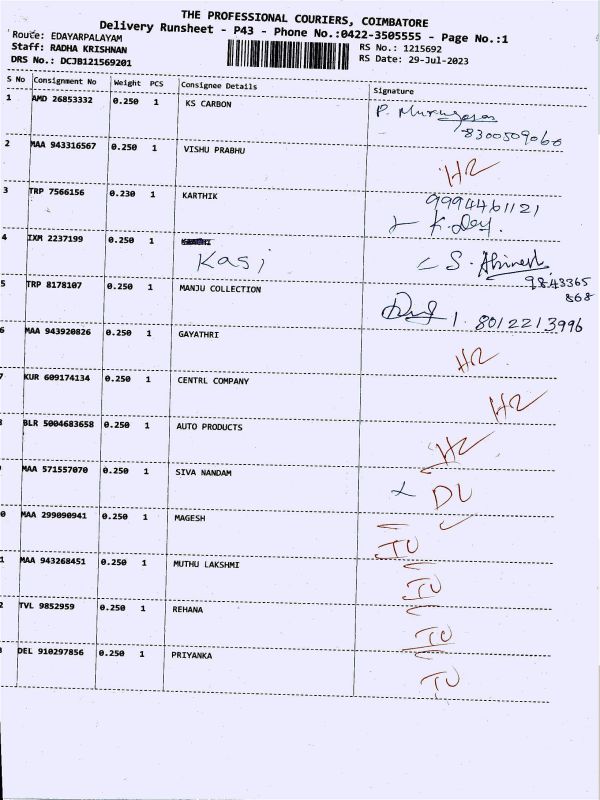 THE PROFESSIONAL COURIERS, COIMBATORE
Delivery Runsheet - P43 - Phone No.:0422-3505555 - Page No.:1
Route: EDAYARPALAYAM
RS No.: 1215692
Staff: RADHA KRISHNAN
RS Date: 29-Jul-2023
DRS No.: DCJB121569201
S No Consignment No Weight PCS Consignee Details Signature
1 AMD 26853332 0.250 1 KS CARBON P. Murugesan
8300509060
2 MAA 943316567 0.250 1 VISHU PRABHU HR
3 TRP 7566156 0.230 1 KARTHIK 9994461121
4 IXM 2237199 0.250 1 Kasi S. Abinesh
9843365
868
5 TRP 8178107 0.250 1 MANJU COLLECTION 8012213996
6 MAA 943920826 0.250 1 GAYATHRI HR
7 KUR 609174134 0.250 1 CENTRL COMPANY HR
8 BLR 5004683658 0.250 1 AUTO PRODUCTS HR
MAA 571557070 0.250 1 SIVA NANDAM DL
0 MAA 299090941 0.250 1 MAGESH TU
1 MAA 943268451 0.250 1 MUTHU LAKSHMI TU
2 TVL 9852959 0.250 1 REHANA TU
3 DEL 910297856 0.250 1 PRIYANKA TU